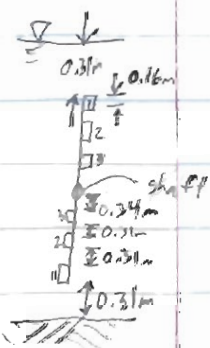 0.31m
0.16m
1
2
3
shaft
3
0.31m
2
0.31m
0.31m
1
0.31m